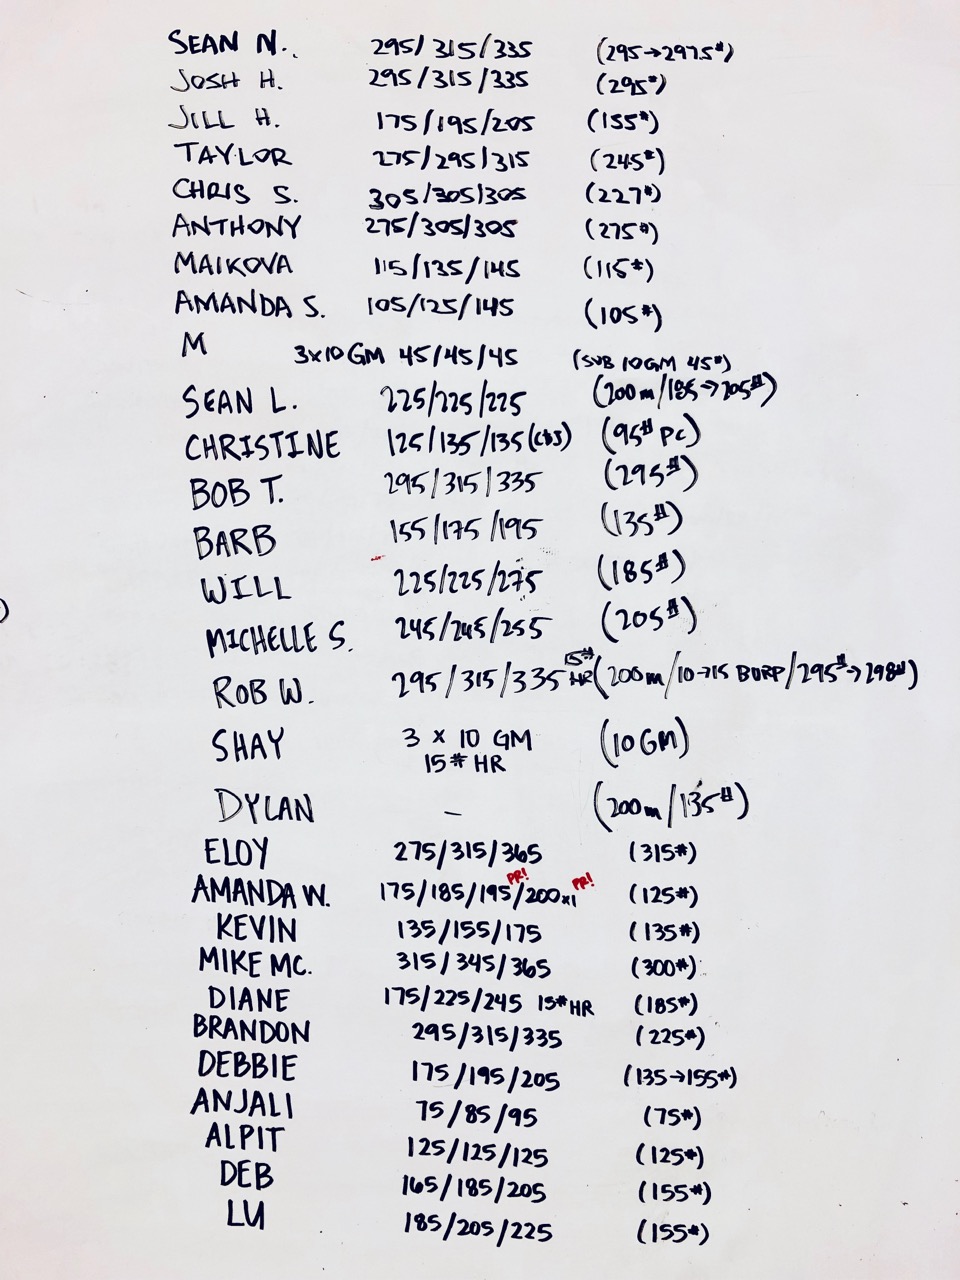 SEAN N. 295/315/335 (295→297.5#)
JOSH H. 295/315/335 (295#)
JILL H. 175/195/205 (155#)
TAYLOR 275/295/315 (245#)
CHRIS S. 305/305/305 (227#)
ANTHONY 275/305/305 (275#)
MAIKOVA 115/135/145 (115#)
AMANDA S. 105/125/145 (105#)
M 3x10 GM 45/45/45 (SUB 10GM 45#)
SEAN L. 225/225/225 (200m/185→205#)
CHRISTINE 125/135/135 (CBJ) (95# PC)
BOB T. 295/315/335 (295#)
BARB 155/175/195 (135#)
WILL 225/225/275 (185#)
MICHELLE S. 245/245/255 (205#)
ROB W. 295/315/335 15# HR (200m/10→15 BURP/295#→298#)
SHAY 3 x 10 GM (10 GM)
15# HR
DYLAN – (200m/135#)
ELOY 275/315/365 (315#)
AMANDA W. 175/185/195 PR!/200x1 PR! (125#)
KEVIN 135/155/175 (135#)
MIKE MC. 315/345/365 (300#)
DIANE 175/225/245 15# HR (185#)
BRANDON 295/315/335 (225#)
DEBBIE 175/195/205 (135→155#)
ANJALI 75/85/95 (75#)
ALPIT 125/125/125 (125#)
DEB 165/185/205 (155#)
LU 185/205/225 (155#)